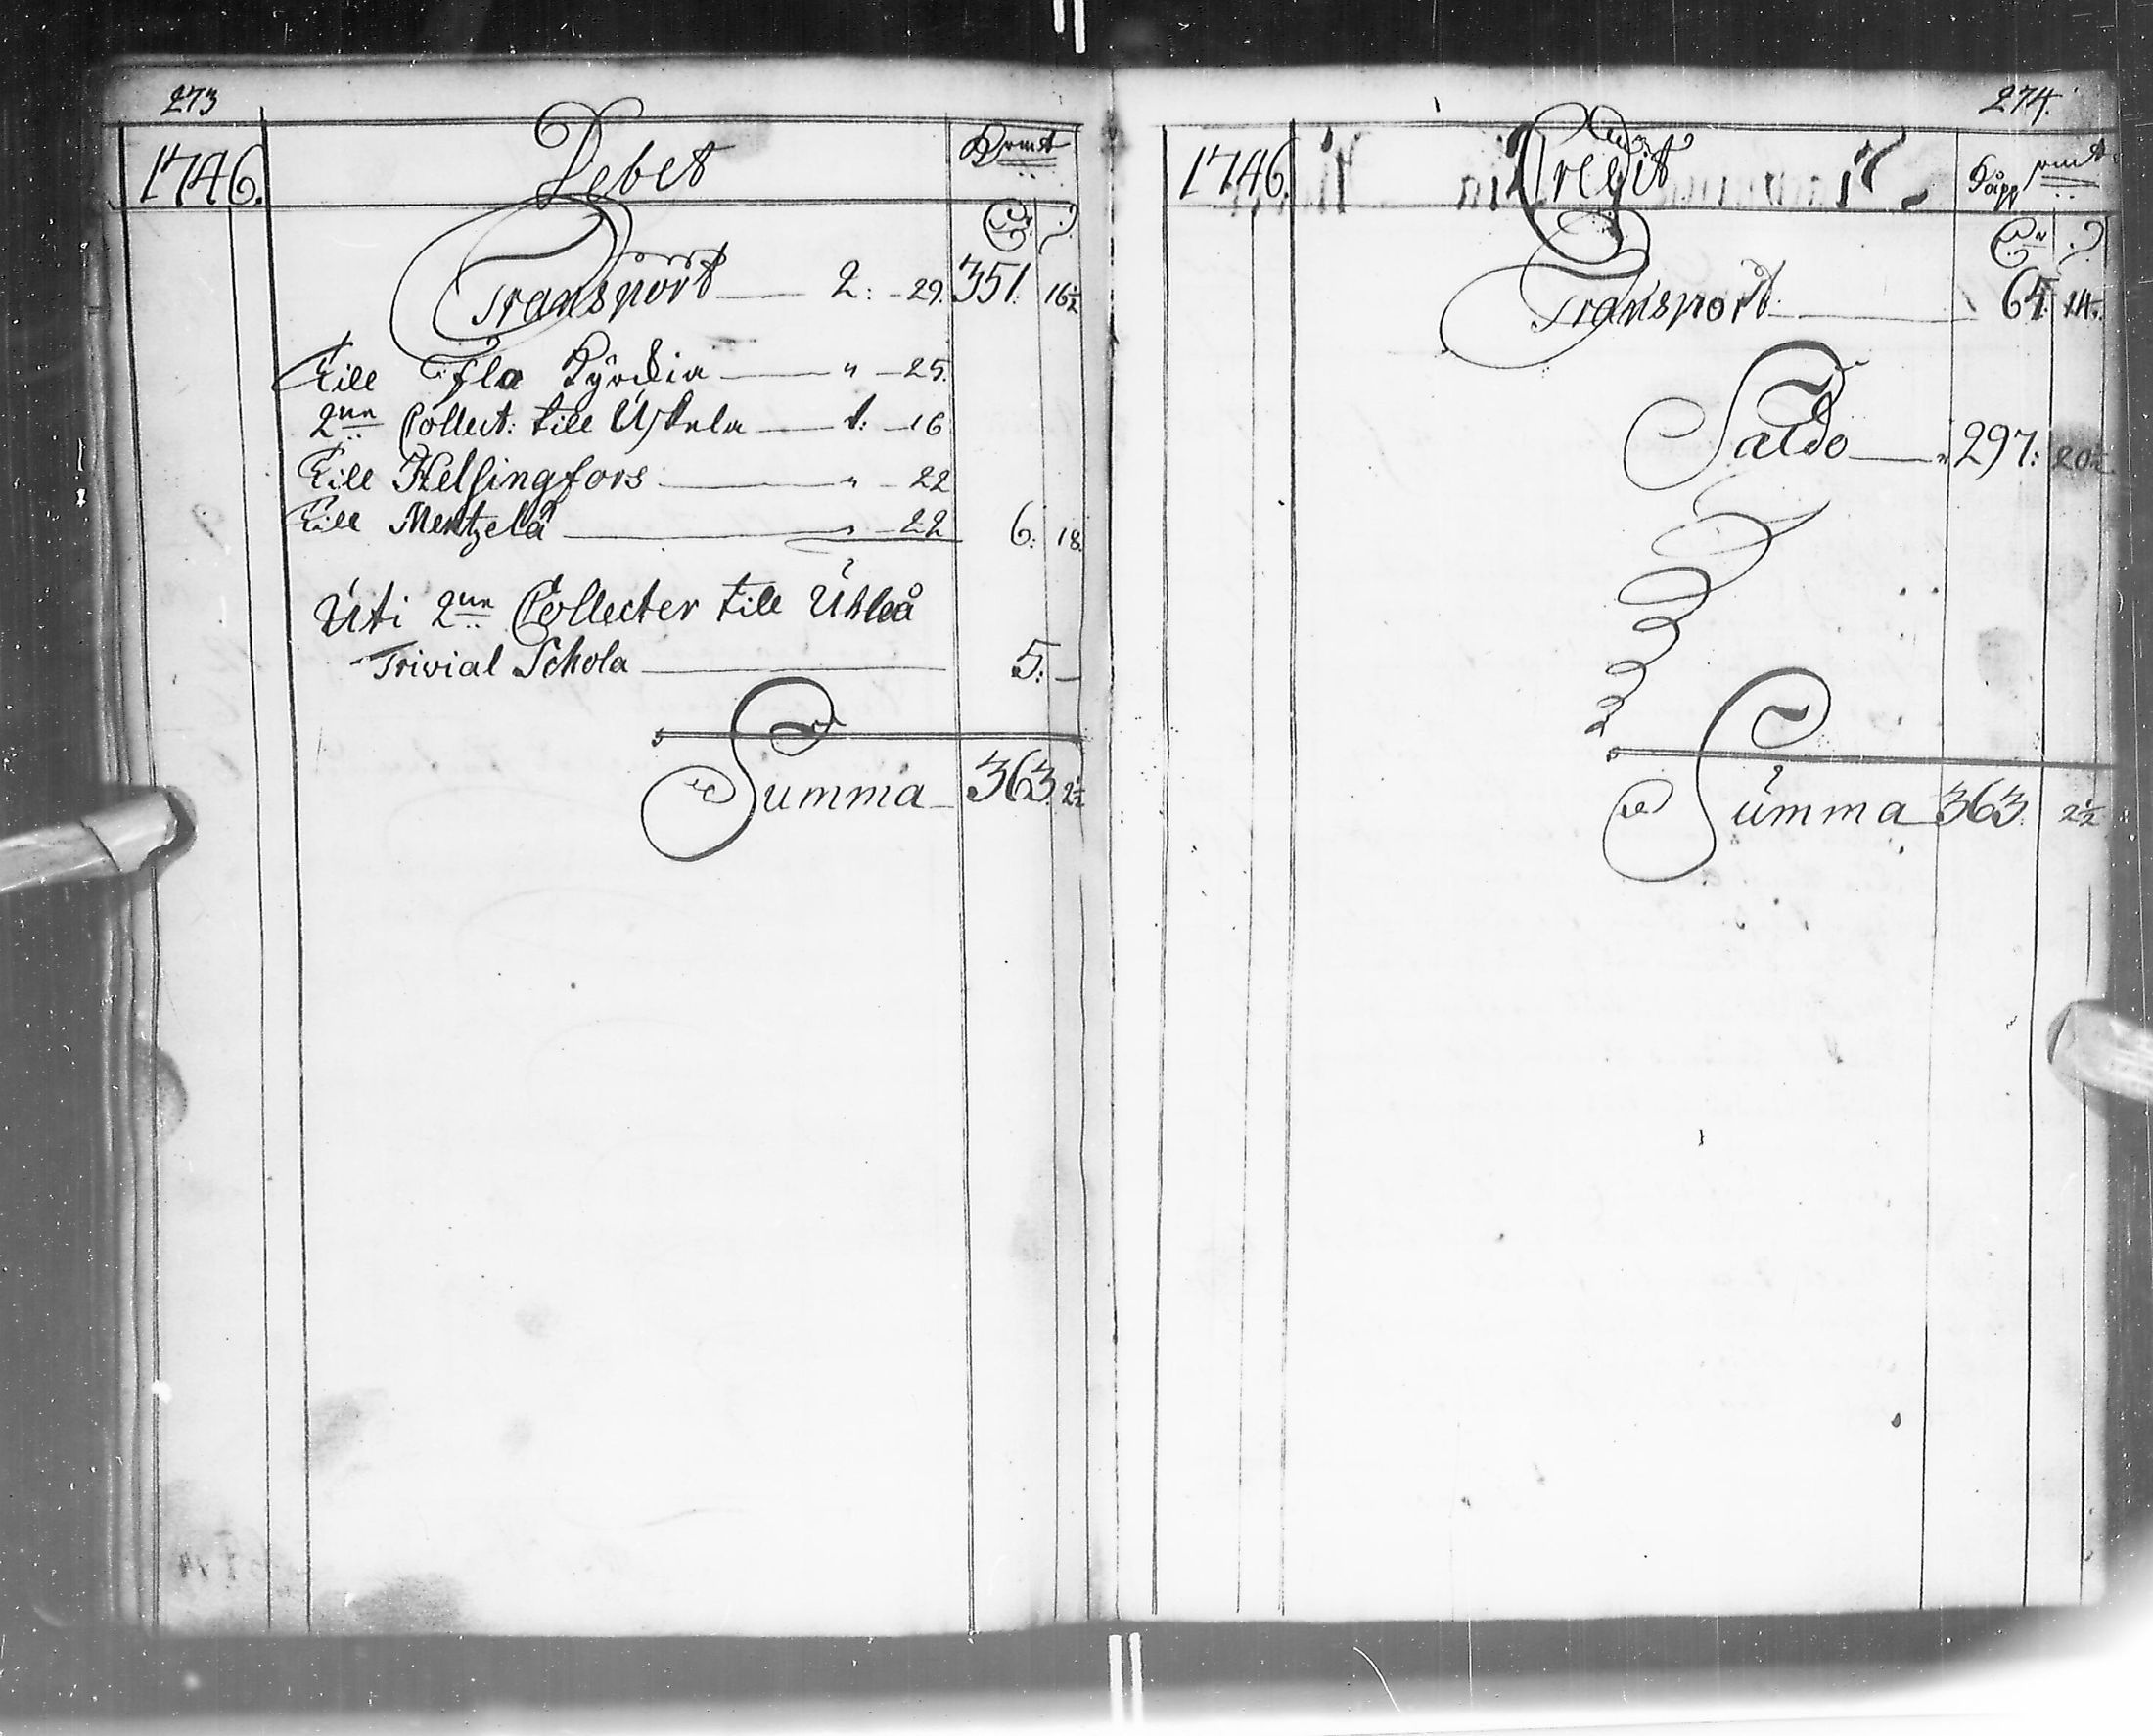 273
1746. Debet Kopmt
Transport 2: - 29. 351: 16½
Till Kyrckia " - 25.
2ne Collect: till 1: - 16
Till Helsingfors " - 22
Till Mentzelä " - 22 6: 18.
Uti 2ne Collecter till Uhleå
Trivial Schola 5: -
Summa 363. 2½
274.
1746. Credit Kopp smt
Transport 65: 14.
Saldo 297: 20½
Summa 363. 2½